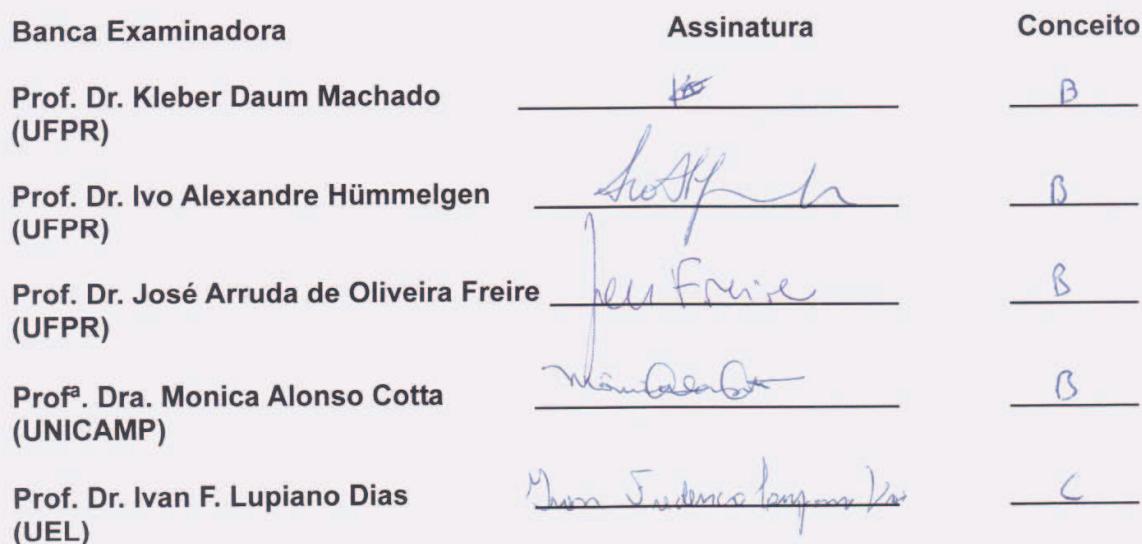 Banca Examinadora Assinatura Conceito
Prof. Dr. Kleber Daum Machado B
(UFPR)
Prof. Dr. Ivo Alexandre Hümmelgen B
(UFPR)
Prof. Dr. José Arruda de Oliveira Freire Freire B
(UFPR)
Profª. Dra. Monica Alonso Cotta B
(UNICAMP)
Prof. Dr. Ivan F. Lupiano Dias Ivan Frederico C
(UEL)